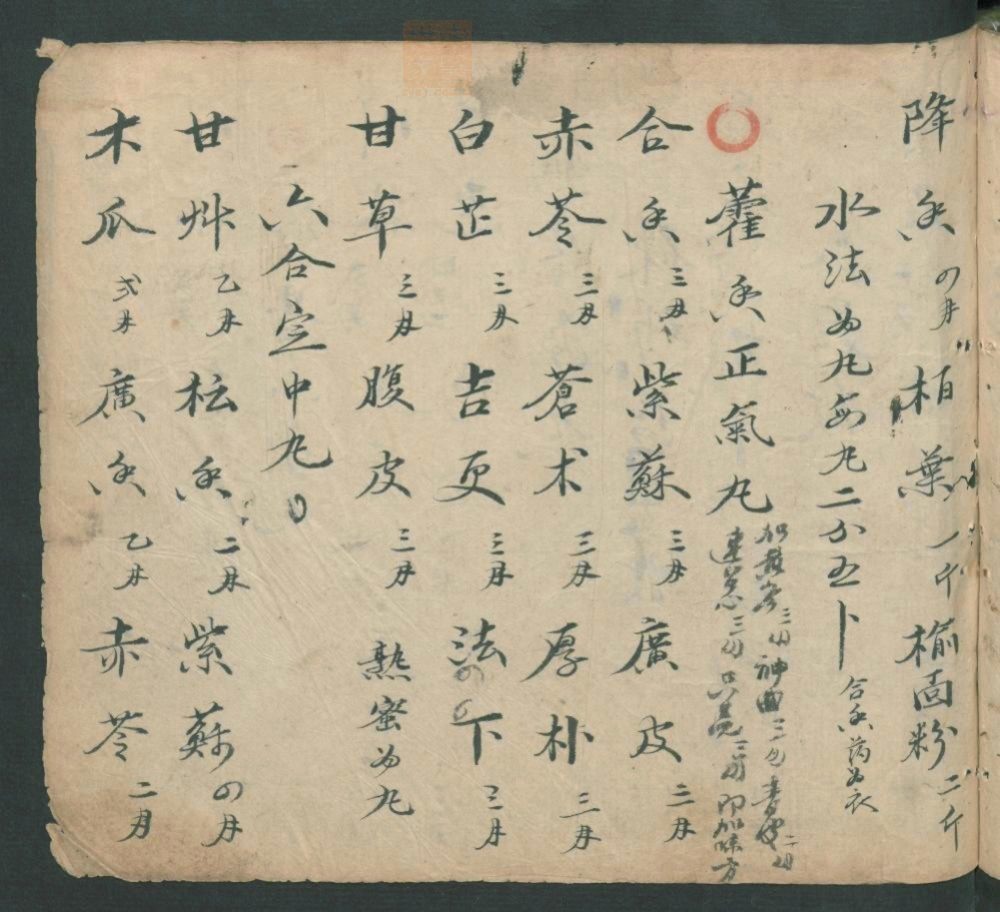 降香四两柏葉一斤榆面粉二斤
水法为丸每丸二分五卜合香为衣
藿香正氣丸
神曲三
三只壳三即加味方
合香三两紫蘇三两廣皮二两
赤苓三两蒼术三两厚朴三两
白芷三两吉更三两法下三两
甘草三两腹皮三两熟蜜为丸
六合定中丸
甘艸乙两枟香二两紫蘇四两
木瓜弍两廣香乙两赤苓二两